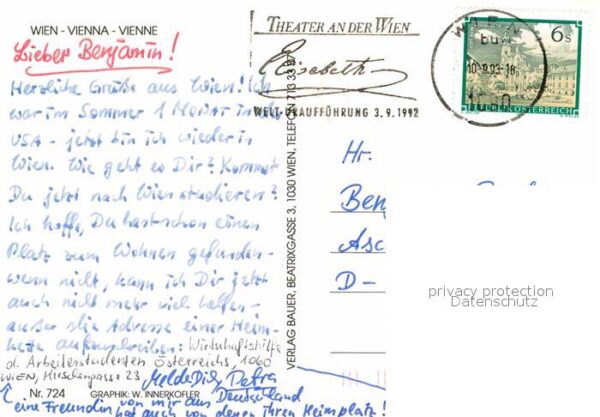 WIEN - VIENNA - VIENNE
Lieber Benjamin!
Herzliche Grüße aus Wien! Ich
war im Sommer 1 Monat in den
USA - jetzt bin ich wieder in
Wien. Wie geht es Dir? Kommst
Du jetzt nach Wien studieren?
Ich hoffe, Du hast schon einen
Platz zum Wohnen gefunden -
wenn nicht, kann ich Dir jetzt
auch nicht mehr viel helfen -
außer die Adresse einer Heim-
kette aufzuschreiben: Wirtschaftshilfe
d. Arbeiterstudenten Österreichs, 1060
WIEN, Hirschengasse 23
Melde Dich Petra
eine Freundin von mir aus Deutschland
hat auch von denen ihren Heimplatz!
Nr. 724
GRAPHIK: W. INNERKOFLER
VERLAG BAUER, BEATRIXGASSE 3, 1030 WIEN, TELEFON 713 33
THEATER AN DER WIEN
Elisabeth
WELT-URAUFFÜHRUNG 3.9.1992
WIEN
10.-9.93-18
6s
REPUBLIK ÖSTERREICH
Hr.
Ben
Asc
D-
privacy protection
Datenschutz